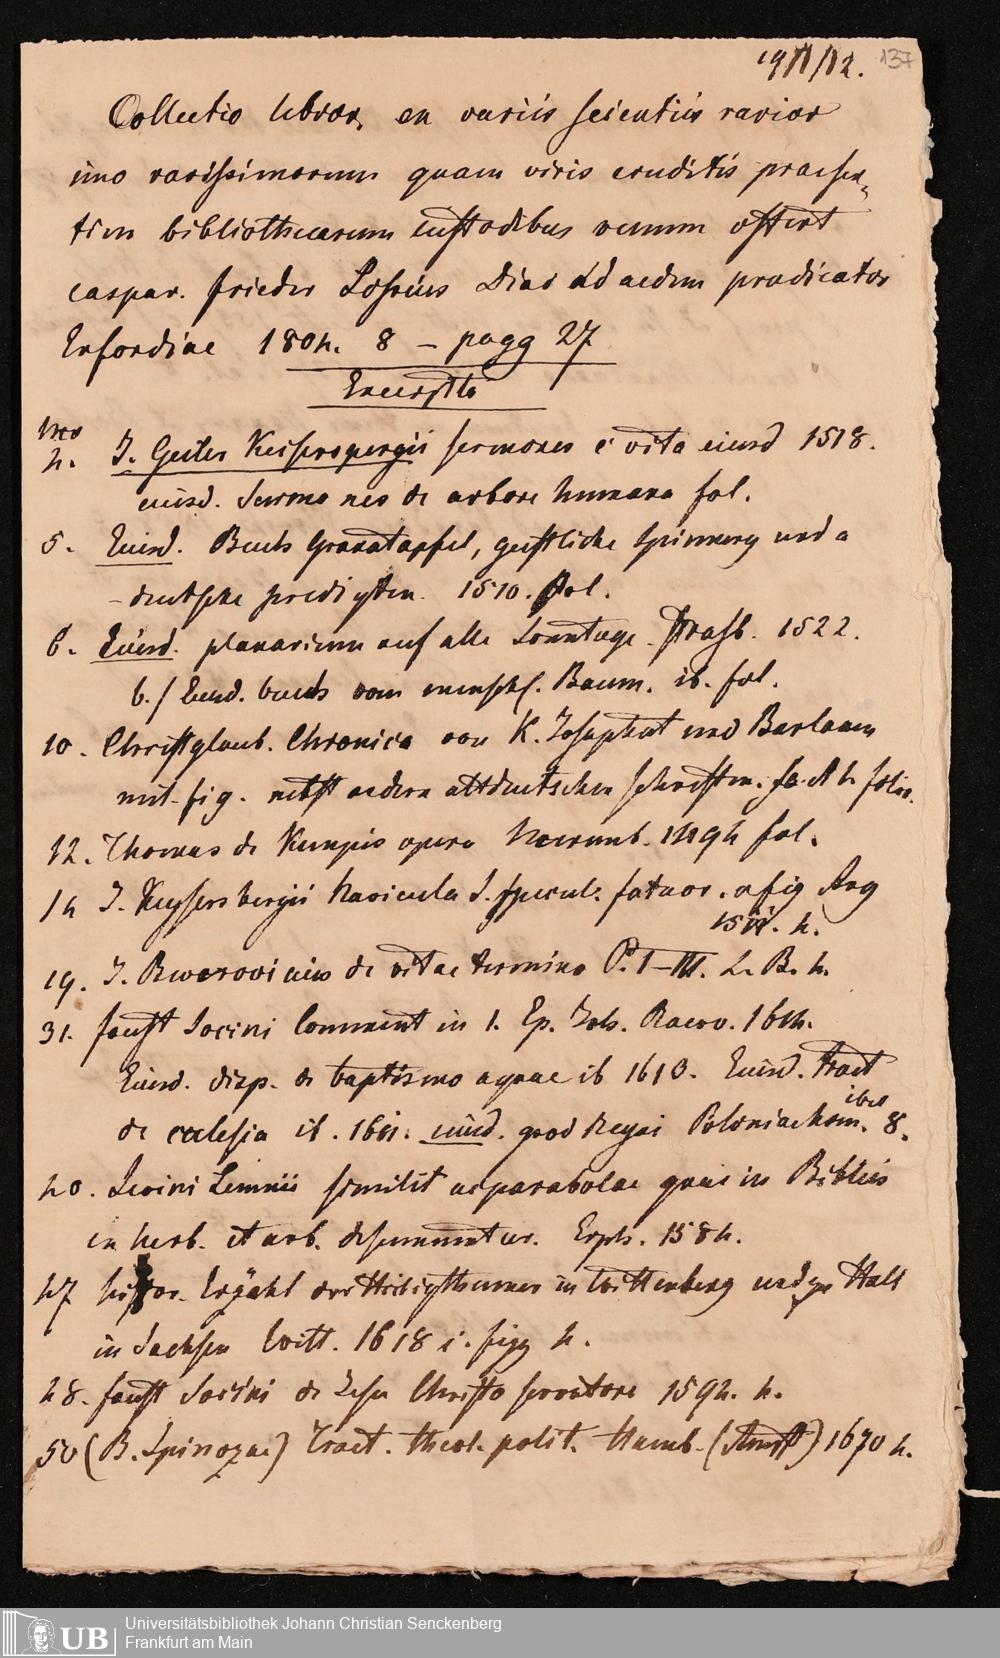 137
Collectio libror. ex variis scientiis rarior
imo rarissimorum quam viris eruditis praeser=
tim bibliothecarum custodibus venum offert
caspar. frieder Lossius Diac ad aedem praedicator
Erfordiae 1804. 8 – pagg 27
Excerpta
Nro
4. J. Geiler Keisersspergii sermones e vita eiusd 1518.
eiusd. Sermones de arbore humana fol.
5. Eiusd. Buch Granatapfel, geistliche Spinnerey und a
deutsche predigten. 1510. fol.
6. Eiusd. planarium auf alle Sonntage. Strasb. 1522.
b./ Eiusd. buch vom menschl. Baum. ib. fol.
10. Christglaub. Chronica von K. Josaphat und Barlaam
mit fig. nebst andern altdeutschen schriften. folio.
12. Thomas de Kempis opera Norimb. 1494 fol.
14 J. Keysersbergii Navicula s. specul. fatuor. c fig Arg
1511. 4.
19. J. Bwerovicius de vitae termino P. I–III. L. B. 4.
31. faust Socini Comment in 1. Ep. Joh. Racov. 1614.
Eiusd. disp. de baptismo aquae ib 1613. Eiusd. tract
de ecclesia ib. 1611. eiusd. quod Regni Poloniae hom. ibid 8.
40. Levini Lemnii similit ac parabolae quae in Bibliis
ex herb. et arb. desumuntur. Erph. 1584.
47 histor. Erzähl der Heiligthumer in Wittenberg und zu Hall
in Sachsen Witt. 1618 c. figg 4.
48. faust Socini de Jesu Christo servatore 1594. 4.
50 (B. Spinozae) Tract. theol. polit. Hamb. (Amst) 1670 4.
Universitätsbibliothek Johann Christian Senckenberg
Frankfurt am Main
UB